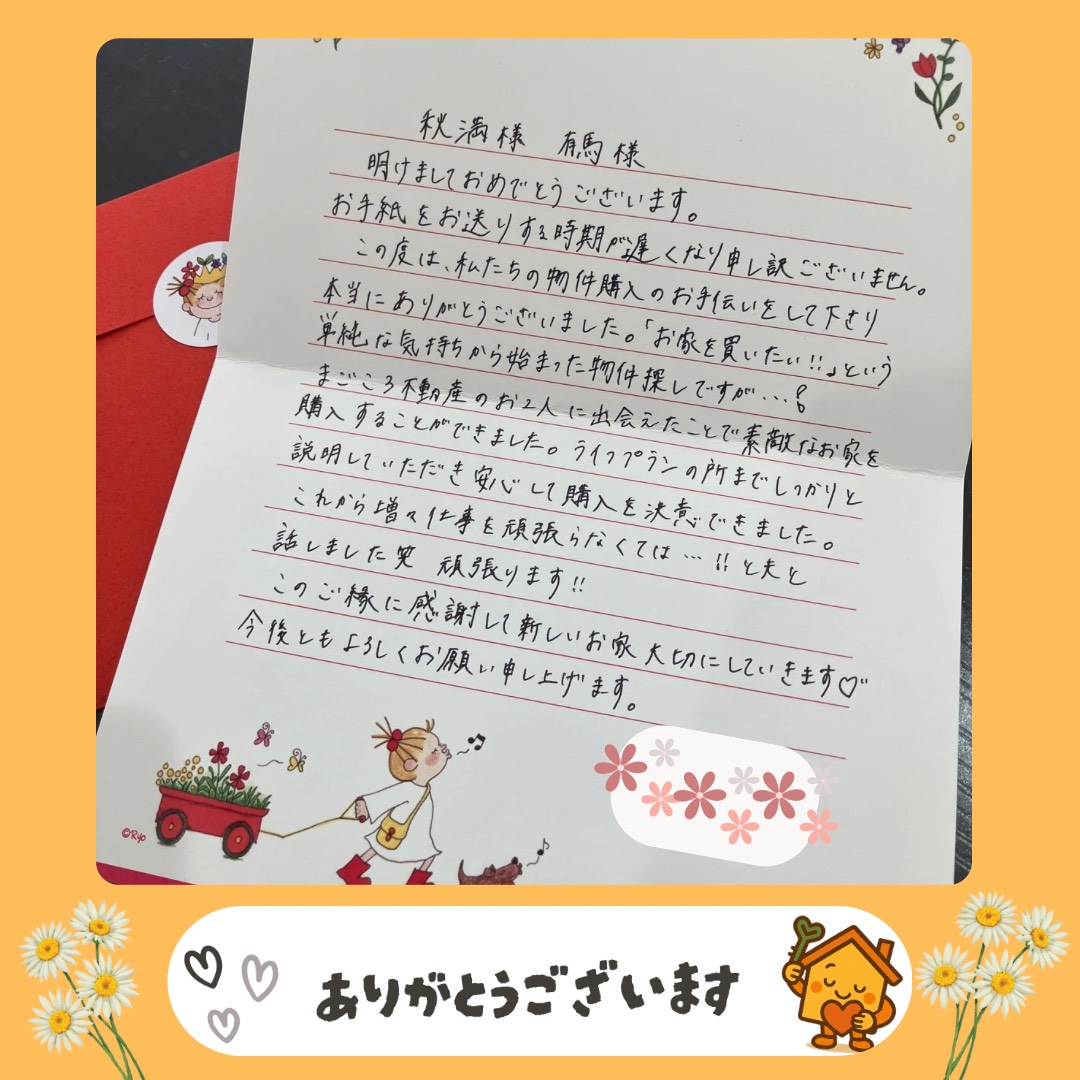 秋満様 有馬様
明けましておめでとうございます。
お手紙をお送りする時期が遅くなり申し訳ございません。
この度は、私たちの物件購入のお手伝いをして下さり
本当にありがとうございました。「お家を買いたい!!」という
単純な気持ちから始まった物件探しですが…!
まごころ不動産のお2人に出会えたことで素敵なお家を
購入することができました。ライフプランの所までしっかりと
説明していただき安心して購入を決意できました。
これから増々仕事を頑張らなくては…!!と夫と
話しました笑 頑張ります!!
このご縁に感謝して新しいお家大切にしていきます♡
今後ともよろしくお願い申し上げます。
©Ryo
ありがとうございます